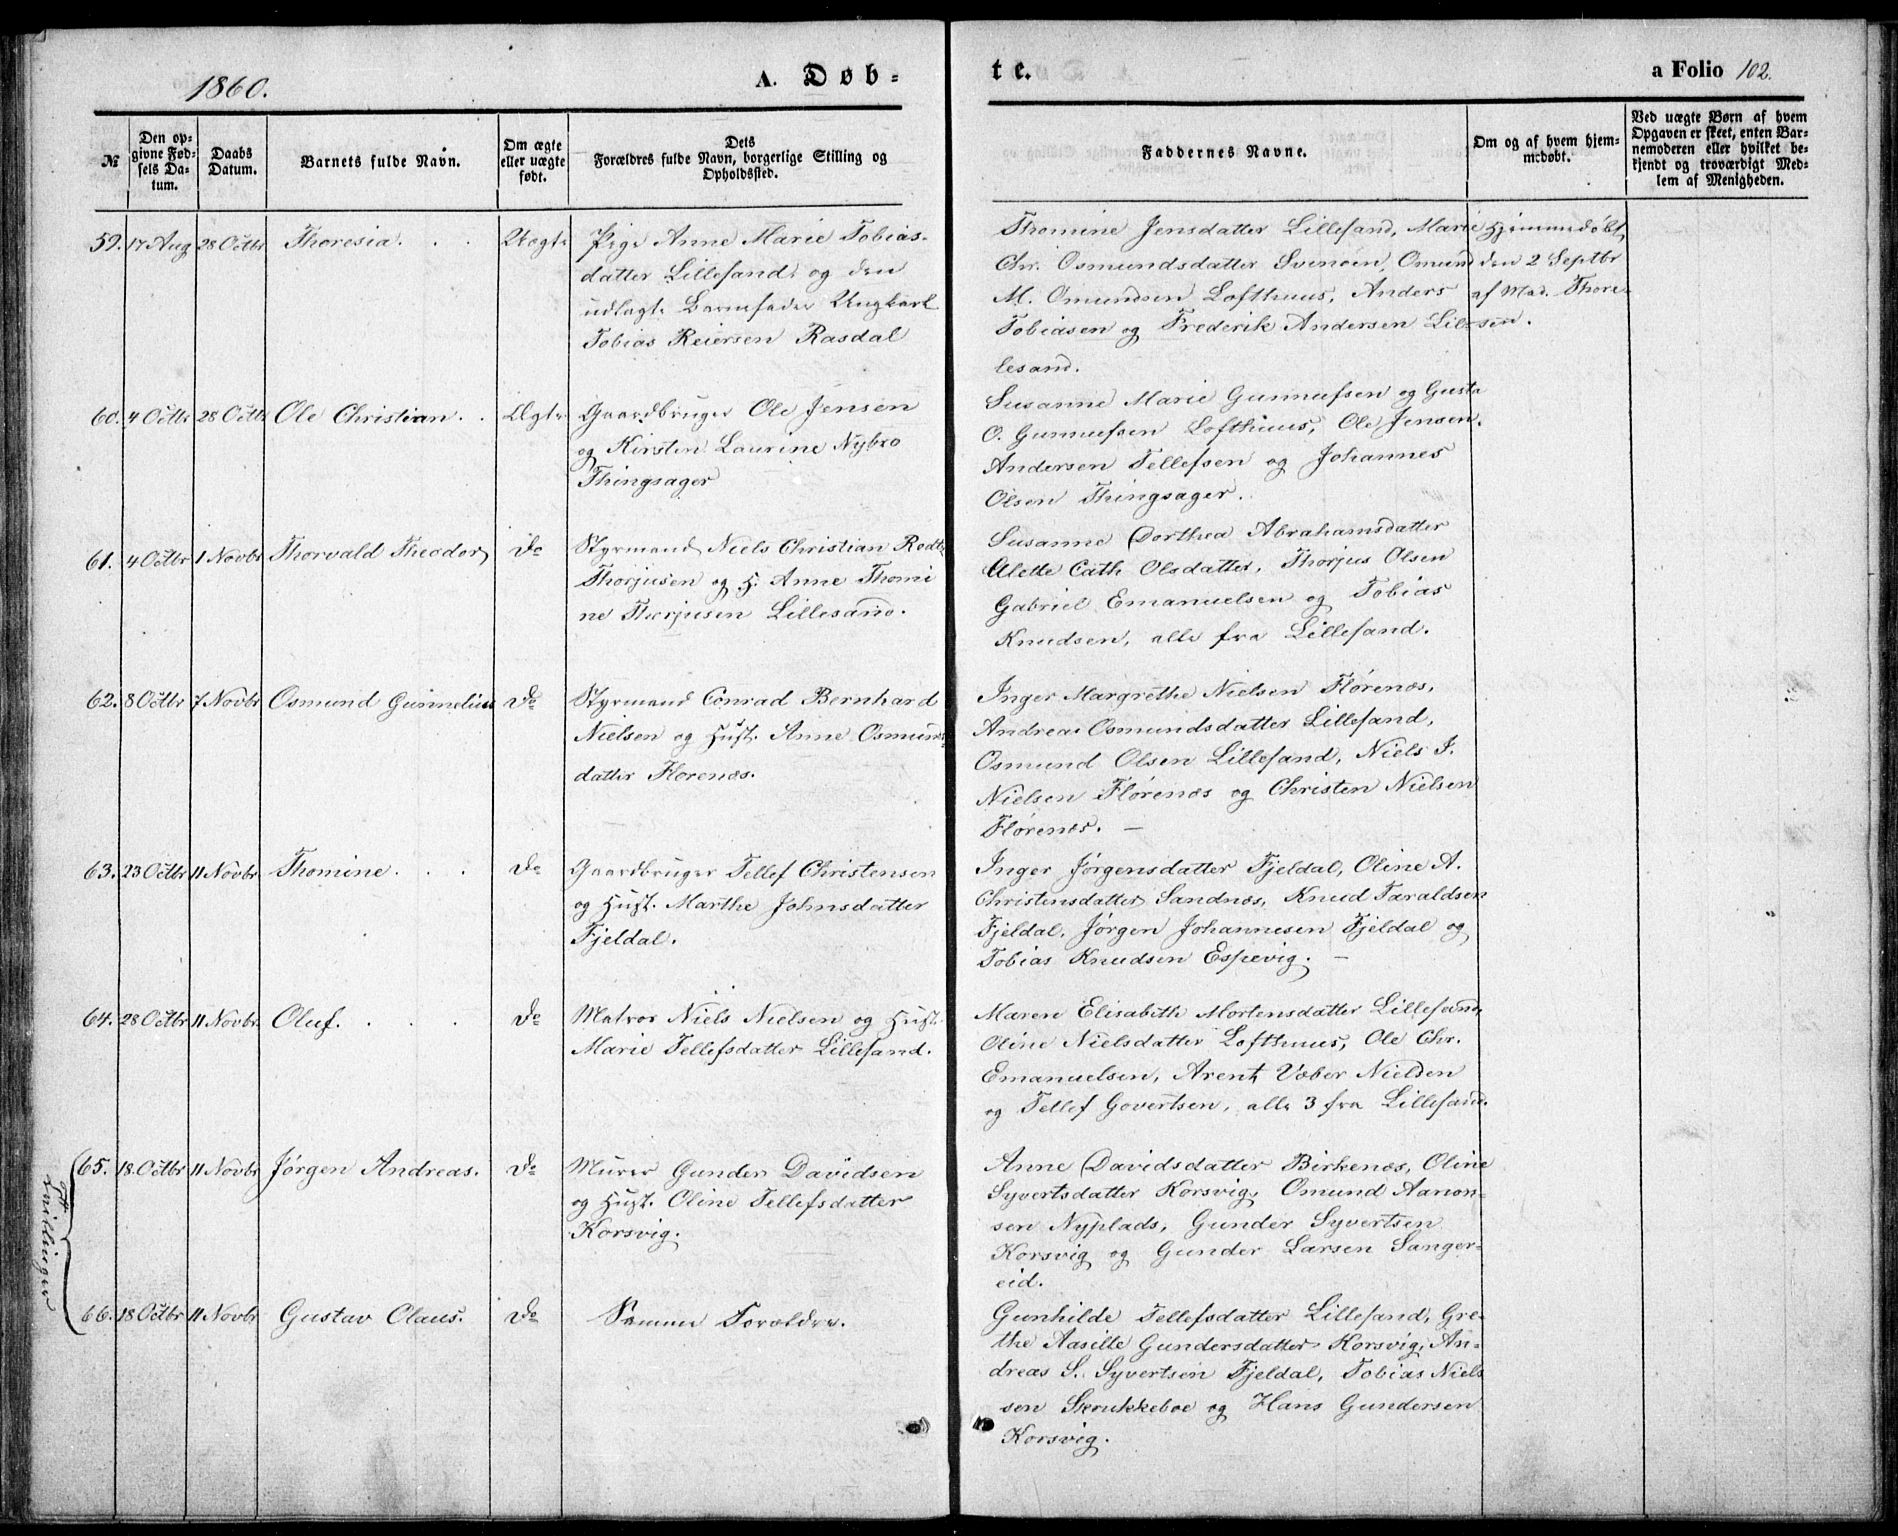 1860.
A. Døb-
te.
a Folio 102.
№
Den op-
givne Fød-
sels Da-
tum.
Daabs
Datum.
Barnets fulde Navn.
Om ægte
eller uægte
født.
Dets
Forældres fulde Navn, borgerlige Stilling og
Opholdssted.
Faddernes Navne.
Om og af hvem hjem-
medøbt.
Ved uægte Børn af hvem
Opgaven er skeet, enten Bar-
nemoderen eller hvilket be-
kjendt og troværdigt Med-
lem af Menigheden.
59. 17 Aug 28 Octbr Thoresia. . . Uægte
Pige Anne Marie Tobias-
datter Lillesand, og den
udlagte Barnefader Ungkarl
Tobias Reiersen Rasdal
Thomine Jensdatter Lillesand, Marie
Chr. Osmundsdatter Svinøen, Omund
M. Omundsen Lofthuus, Anders
Tobiasen og Frederik Andersen Lil-
lesand.
Hjemmedøbt
den 2 Septbr
af Mad. Thore-
sen.
60. 4 Octbr 28 Octbr Ole Christian. . Ægte
Gaardbruger Ole Jensen
og Kirsten Laurine Nybro
Thingsager
Susanne Marie Gunnufsen og Gusta
O. Gunnufsen Lofthuus, Ole Jensen.
Andersen Tellefsen og Johannes
Olsen Thingsager.
61. 4 Octbr 1 Novbr Thorvald Theodor Do
Styrmand Niels Christian Rodtz
Thorjusen og H. Anne Thomi
ne Thorjusen Lillesand.
Susanne Dorthea Abrahamsdatter
Alette Cath Olsdatter, Thorjus Olsen
Gabriel Emanuelsen og Tobias
Knudsen, alle fra Lillesand.
62. 8 Octbr 7 Novbr Osmund Gunnelius Do
Styrmand Conrad Bernhard
Nielsen og Hust. Anne Osmunds
datter Florenæs.
Inger Margrethe Nielsen Flørenæs,
Andrea Osmundsdatter Lillesand,
Osmund Olsen Lillesand, Niels J.
Nielsen Flørenæs og Christen Nielsen
Flørenæs. —
63. 23 Octbr 11 Novbr. Thomine. . . Do
Gaardbruger Tellef Christensen
og Hust. Marthe Johnsdatter
Fjeldal.
Inger Jørgensdatter Fjeldal, Oline A.
Christensdatter Sandnæs, Knud Taraldsen
Fjeldal, Jørgen Johannesen Fjeldal og
Tobias Knudsen Espevig. —
64. 28 Octbr 11 Novbr. Oluf. . . . Do
Matros Niels Nielsen og Hust.
Marie Tellefsdatter Lillesand.
Maren Elisabeth Mortensdatter Lillesand,
Oline Nielsdatter Lofthuus, Ole Chr.
Emanuelsen, Arent Væber Nielsen
og Tellef Govertsen, alle 3 fra Lillesand.
Tvillinger
65. 18. Octbr 11 Novbr Jørgen Andreas. Do
Murer Gunder Davidsen
og Hust. Oline Tellefsdatter
Korsvig.
Anne Davidsdatter Birkenæs, Oline
Syvertsdatter Korsvig, Omund Aanon-
sen Nyplads, Gunder Syvertsen
Korsvig og Gunder Larsen Sanger-
eid.
66. 18 Octbr 11 Novbr Gustav Olaus. Do
Samme Forældre.
Gunhilde Tellefsdatter Lillesand, Gre-
the Aasille Gundersdatter Korsvig, An-
dreas S. Syvertsen Fjeldal, Tobias Niels
sen Skrukkeboe og Hans Gundersen
Korsvig.